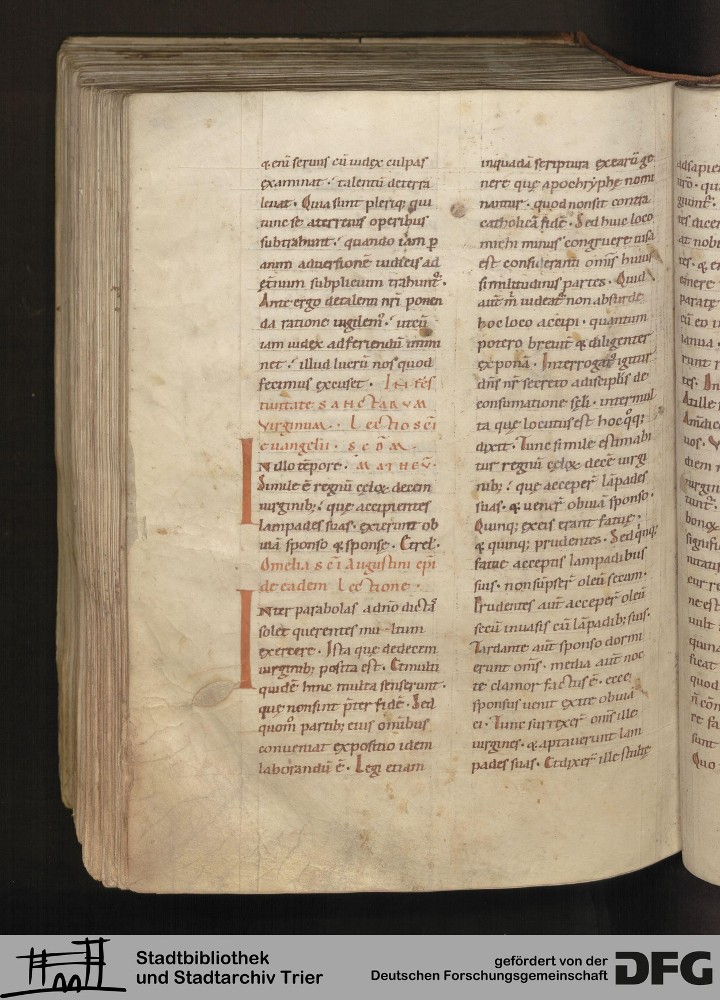 q; enī serius cū iudex culpas
examinat · talentū deterra
leuat · Quia sunt plerique qui
tunc se aterrenis operibus
subtrahunt · quando iam p
anim aduersionē iudicis ad
etnum supplicium trahunt ·
Ante ergo detalenti nr̄i ponen
da ratione uigilem · ut cū
iam iudex ad feriendū immi
net · illud lucrū nos quod
fecimus excuset · IN fes
tiuitate SANCTARVM
Virginum · Lectio sc̄i
euangelii · SCDM ·
N illo tēpore · MATHEV̄ ·
Simile ē regnū celoꝝ decem
uirginib; que accipientes
lampades suas · exierunt ob
uiā sponso & sponse · Et rel ·
Omelia sc̄i Augustini ep̄i
de eadem Lectione ·
INter parabolas a dn̄o dictas
solet querentes mu ltum
exercere · Ista que dedecem
uirginib; posita est · Et multi
quidē hinc multa senserunt ·
que non sint p̄ter fidē · Sed
quom̄ partib; eius omībus
conueniat expositio idem
laborandū ē · Legi etiam
inquadā scriptura exearū ge
nere que apochryphe nomi
nantur · quod non sit contra
catholicā fidē · Sed huic loco
michi minus congruere uisa
est consideranti om̄s huius
similitudinis partes · Quid
aut m̄ uideat non absurde
hoc loco accipi · quantum
potero breuit & diligenter
exponā · Interrogat igitur
dn̄s nr̄ secreto adiscipl̄is de
consumatione sc̄li · inter mul
ta que locutus est hoc qq;
dixit · Tunc simile estimabi
tur regnū celoꝝ decē uirgi
nib; que acceper lāpades
suas · & uener obuiā sponso ·
Quinq; ex eis erant fatue ·
& quinq; prudentes · Sed qinq;
fatue acceptis lampadibus
suis · non sūpser oleū secum ·
Prudentes aut acceper oleū
secū in uasis cū lāpadib; suis ·
Tardante aut sponso dormi
erunt om̄s · media aut noc
te clamor factus ē · ecce
sponsus uenit exite obuiā
ei · Tunc surrexer om̄s ille
uirgines · & aptauerunt lam
pades suas · Et dixer ille stulte
Stadtbibliothek
und Stadtarchiv Trier
gefördert von der
Deutschen Forschungsgemeinschaft
DFG